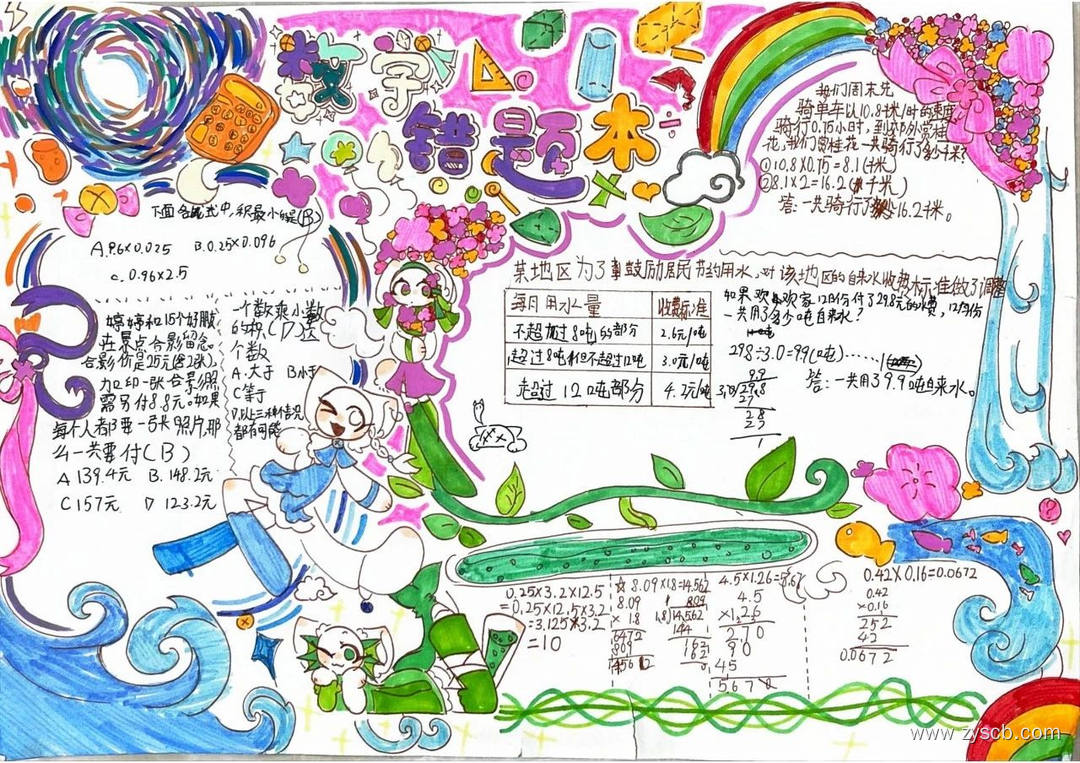 数字
错题本
我们周末先
骑单车以10.8千米/时的速度
骑行0.75小时,到郊外赏桂
花,我们赏桂花一共骑行了多少千米?
①10.8×0.75=8.1(千米)
②8.1×2=16.2(千米)
答:一共骑行了16.2千米。
下面各式中,积最小的是(B)
A.9.6×0.025 B.0.25×0.096
C.0.96×2.5
婷婷和15个好朋友
在景点合影留念。
合影价是25元(含2张),
加印一张合影照
需另付8.8元。如果
每个人都要一张照片,那
么一共要付(B)
A 139.4元 B.148.2元
C 157元 D 123.2元
一个数乘小数
的积(D)这
个数
A.大于 B小于
C等于
D.以上三种情况
都有可能
某地区为了鼓励居民节约用水,对该地区的自来水收费标准做了调整
每月用水量 收费标准
不超过8吨的部分 2.6元/吨
超过8吨但不超过12吨 3.0元/吨
超过12吨部分 4.2元/吨
如果欢欢家12月份付了29.8元的水费,12月份
一共用了多少吨自来水?
29.8÷3.0=9.9(吨)......1
答:一共用了9.9吨自来水。
9.9
3.0 29.8
27
28
25
1
0.25×3.2×12.5
=0.25×12.5×3.2
=3.125×3.2
=10
☆8.09×1.8=14.562
8.09
×1.8
6472
809
14562
8.09
1.8)14.562
144
162
162
0
4.5×1.26=5.67
4.5
×1.26
270
90
45
5670
0.42×0.16=0.0672
0.42
×0.16
252
42
0.0672
www.zyscb.com